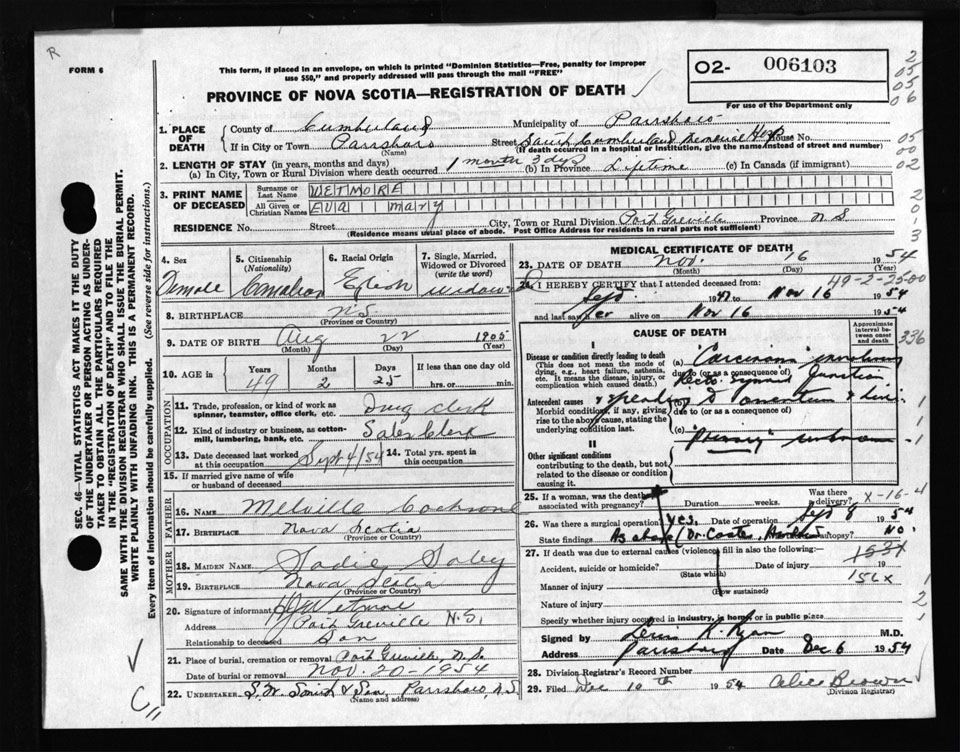 R
FORM 6
This form, if placed in an envelope, on which is printed "Dominion Statistics—Free, penalty for improper
use $50," and properly addressed will pass through the mail "FREE"
PROVINCE OF NOVA SCOTIA—REGISTRATION OF DEATH
02- 006103
For use of the Department only
2
05
05
06
05
00
02
2
0
1
3
SEC. 46—VITAL STATISTICS ACT MAKES IT THE DUTY
OF THE UNDERTAKER OR PERSON ACTING AS UNDER-
TAKER TO OBTAIN ALL THE PARTICULARS REQUIRED
IN THE "REGISTRATION OF DEATH" AND TO FILE THE
SAME WITH THE DIVISION REGISTRAR WHO SHALL ISSUE THE BURIAL PERMIT.
WRITE PLAINLY WITH UNFADING INK. THIS IS A PERMANENT RECORD.
Every item of information should be carefully supplied. (See reverse side for instructions.)
1. PLACE OF DEATH
County of Cumberland Municipality of Parrsboro
If in City or Town Parrsboro Street South Cumberland Memorial Hosp House No.
(Name) (If death occurred in a hospital or institution, give the name instead of street and number)
2. LENGTH OF STAY (in years, months and days)
(a) In City, Town or Rural Division where death occurred 1 month 3 dys (b) In Province Lifetime (c) In Canada (if immigrant)
3. PRINT NAME OF DECEASED
Surname or Last Name WETMORE
All Given or Christian Names Eva Mary
RESIDENCE No. Street City, Town or Rural Division Port Greville Province N S
(Residence means usual place of abode. Post Office Address for residents in rural parts not sufficient)
4. Sex Female
5. Citizenship (Nationality) Canadian
6. Racial Origin English
7. Single, Married, Widowed or Divorced (write the word) Widow
8. BIRTHPLACE N S
(Province or Country)
9. DATE OF BIRTH Aug 22 1905
(Month) (Day) (Year)
10. AGE in Years Months Days If less than one day
49 2 25 hrs. or min.
OCCUPATION
11. Trade, profession, or kind of work as spinner, teamster, office clerk, etc. Drug clerk
12. Kind of industry or business, as cotton-mill, lumbering, bank, etc. Sales Clerk
13. Date deceased last worked at this occupation Sept 4/54 14. Total yrs. spent in this occupation
15. If married give name of wife or husband of deceased
FATHER
16. NAME Melville Cochrane
17. BIRTHPLACE Nova Scotia
(Province or Country)
MOTHER
18. MAIDEN NAME Sadie Soley
19. BIRTHPLACE Nova Scotia
(Province or Country)
20. Signature of informant Wetmore
Address Port Greville N.S.
Relationship to deceased Son
21. Place of burial, cremation or removal Port Greville, N.S.
Date of burial or removal Nov. 20 - 1954
22. UNDERTAKER S.W. Smith & Son, Parrsboro, N.S.
(Name and address)
MEDICAL CERTIFICATE OF DEATH
23. DATE OF DEATH Nov. 16 1954
(Month) (Day) (Year)
49-2-25-00
24. I HEREBY CERTIFY that I attended deceased from:
Sept. 19 to Nov 16 1954
and last saw her alive on Nov 16 1954
CAUSE OF DEATH
Approximate interval between onset and death
336
I
Disease or condition directly leading to death
(This does not mean the mode of dying, e.g., heart failure, asthenia, etc. It means the disease, injury, or complication which caused death.)
(a) Carcinoma involving
due to (or as a consequence of)
Recto-Sigmoid junction
Antecedent causes
Morbid conditions, if any, giving rise to the above cause, stating the underlying condition last.
(b) & spreading to omentum & liver
due to (or as a consequence of)
(c) "Primary" unknown
II
Other significant conditions
contributing to the death, but not related to the disease or condition causing it
1
1
1
25. If a woman, was the death associated with pregnancy? Duration weeks. Was there delivery? X-16-4
26. Was there a surgical operation? yes. Date of operation Sept 8 1954
State findings As above (Dr. Coates, Amherst) autopsy? No.
27. If death was due to external causes (violence) fill in also the following:—
Accident, suicide or homicide? Date of injury 19
(State which)
156x
Manner of injury
(How sustained)
Nature of injury
Specify whether injury occurred in industry, in home or in public place
1
2
1
Signed by Lewis R. Ryan M.D.
Address Parrsboro Date Dec 6 1954
28. Division Registrar's Record Number
29. Filed Dec 10th 1954 Alice Brown
(Division Registrar)
C